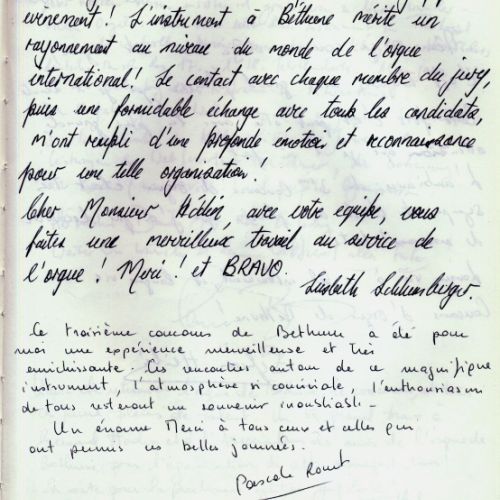 évènement ! L'instrument à Béthune mérite un
rayonnement au niveau du monde de l'orgue
international ! Le contact avec chaque membre du jury,
puis une formidable échange avec touts les candidats,
m'ont rempli d'une profonde émotion et reconnaissance
pour une telle organisation !
Cher Monsieur Hédin, avec votre equipe, vous
faites une merveilleux travail au service de
l'orgue ! Merci ! et BRAVO.
Lisbeth Schlumberger.
Ce troisième concours de Bethune a été pour
moi une expérience merveilleuse et très
enrichissante. Ces rencontres autour de ce magnifique
instrument, l'atmosphère si conviviale, l'enthousiasme
de tous resteront un souvenir inoubliable.
Un énorme Merci à tous ceux et celles qui
ont permis ces belles journées.
Pascale Rouet